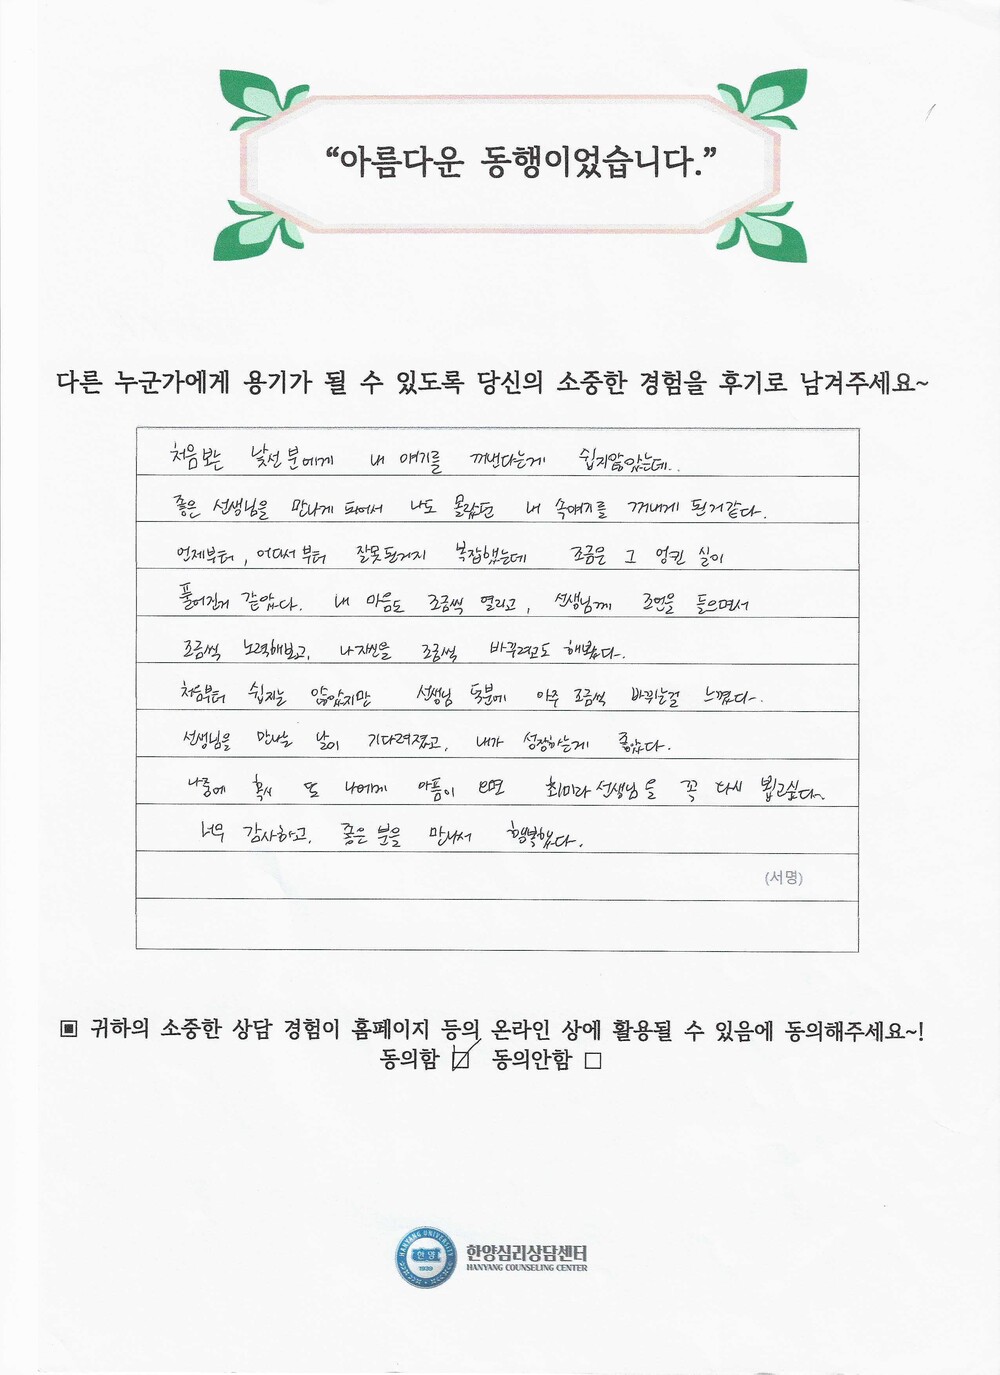 “아름다운 동행이었습니다.”
다른 누군가에게 용기가 될 수 있도록 당신의 소중한 경험을 후기로 남겨주세요~
처음보는 낯선 분에게 내 얘기를 꺼낸다는게 쉽지않았는데..
좋은 선생님을 만나게 되어서 나도 몰랐던 내 속얘기를 꺼내게 된거같다.
언제부터, 어디서부터 잘못된거지 복잡했는데 조금은 그 엉킨 실이
풀어진거 같았다. 내 마음도 조금씩 열리고, 선생님께 조언을 들으면서
조금씩 노력해보고, 나자신을 조금씩 바꾸려고도 해봤다.
처음부터 쉽지는 않았지만 선생님 덕분에 아주 조금씩 바뀌는걸 느꼈다.
선생님을 만나는 날이 기다려졌고, 내가 성장하는게 좋았다.
나중에 혹시 또 나에게 아픔이 오면 최미라 선생님을 꼭 다시 뵙고싶다.
너무 감사하고, 좋은 분을 만나서 행복했다.
(서명)
▣ 귀하의 소중한 상담 경험이 홈페이지 등의 온라인 상에 활용될 수 있음에 동의해주세요~!
동의함 ☑ 동의안함 □
HANYANG UNIVERSITY
한양
1939
한양심리상담센터
HANYANG COUNSELING CENTER